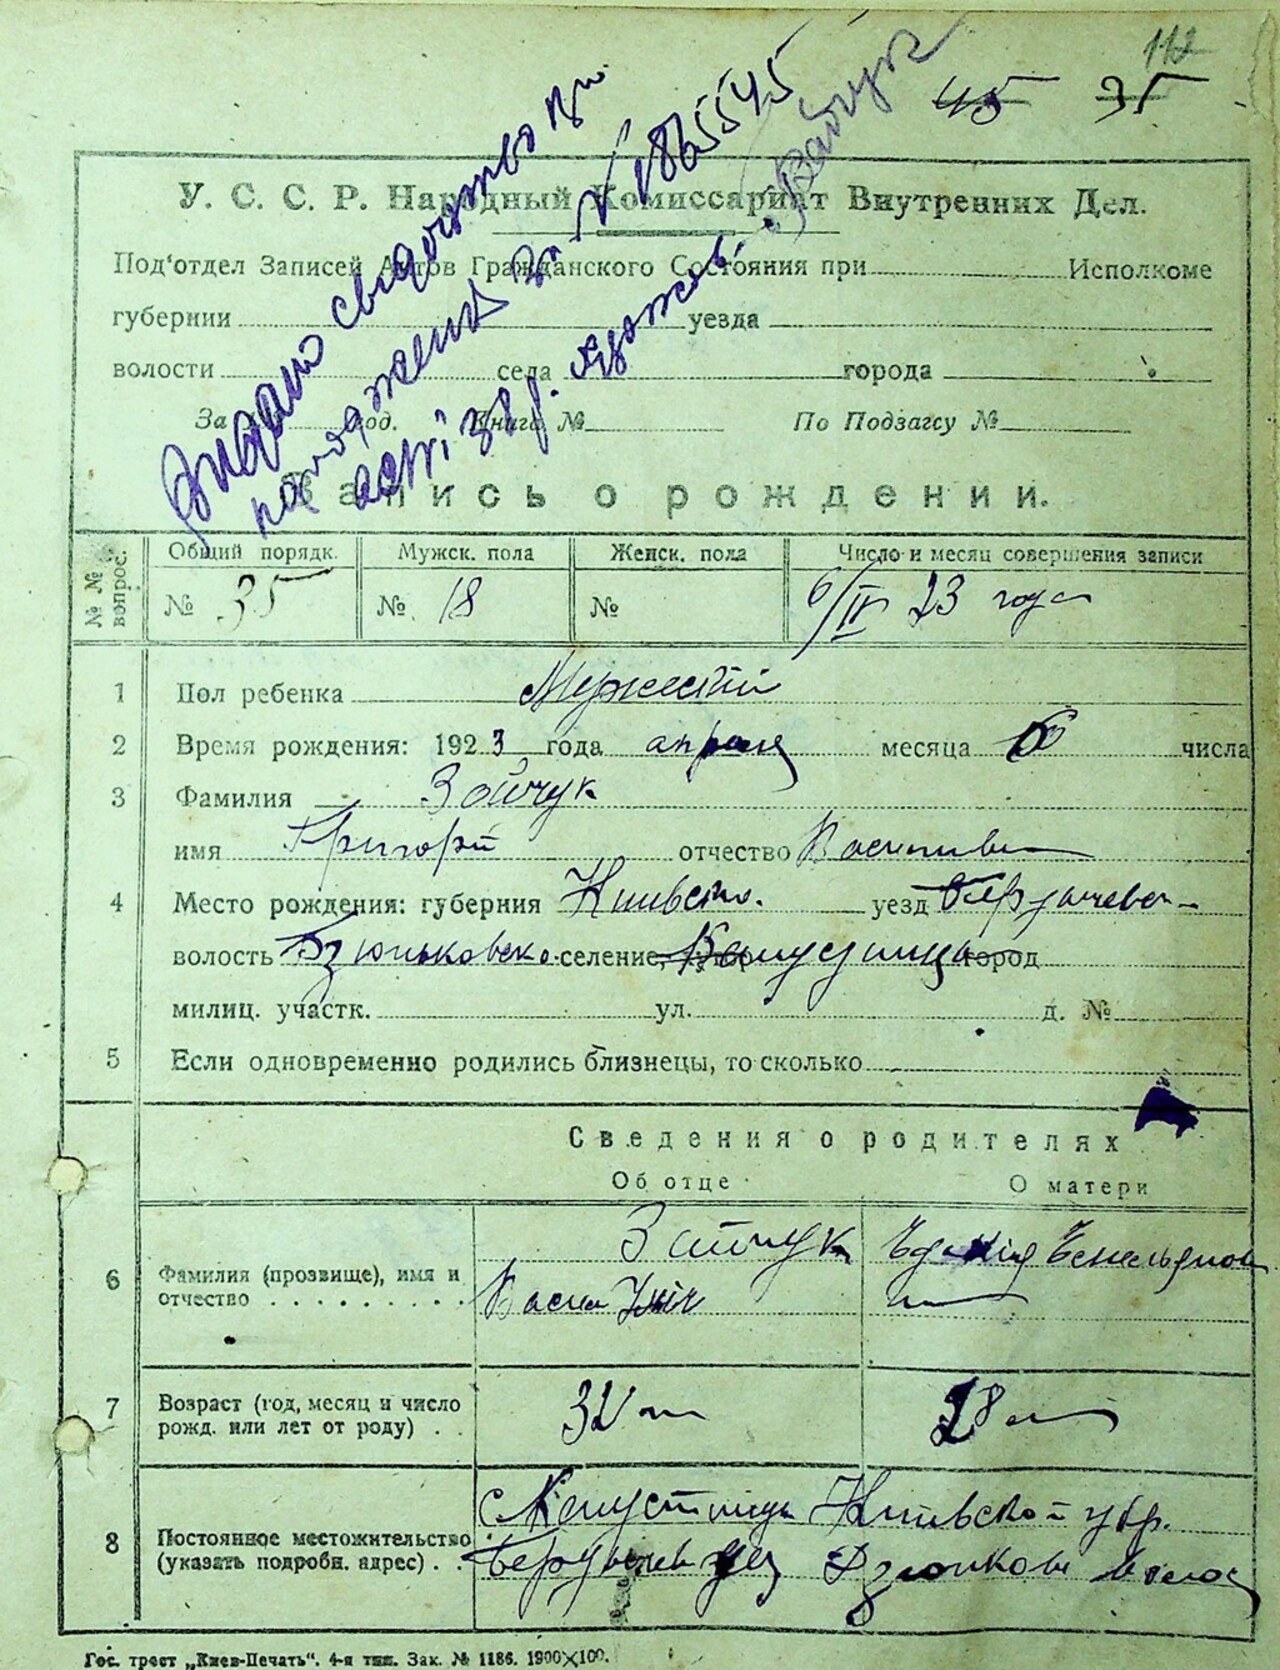 112
45 35
Видано свидоцтво про
народження за № 1865545
У. С. С. Р. Народный Комиссариат Внутренних Дел.
Под'отдел Записей Актов Гражданского Состояния при Исполкоме
губернии уезда
волости села города
За год. Книга № По Подзагсу №
Запись о рождении.
№ № вопрос. Общий порядк. Мужск. пола Женск. пола Число и месяц совершения записи
№ 35 № 18 № 6/IV 23 года
1 Пол ребенка Мужеский
2 Время рождения: 1923 года апреля месяца 6 числа
3 Фамилия Зайчук
имя Григорий отчество Васильев
4 Место рождения: губерния Киевско. уезд Бердичевск
волость Дзюньковско. селение, Капустинцы город
милиц. участк. ул. д. №
5 Если одновременно родились близнецы, то сколько
Сведения о родителях
Об отце О матери
6 Фамилия (прозвище), имя и
отчество
Зайчук
Васил
7 Возраст (год, месяц и число
рожд. или лет от роду)
32 л 28 л
8 Постоянное местожительство
(указать подробн. адрес)
с Капустинцы Киевской губ.
Бердичев уез Дзюнков волос
Гос. трест „Киев-Печать“. 4-я тип. Зак. № 1186. 1900×100.